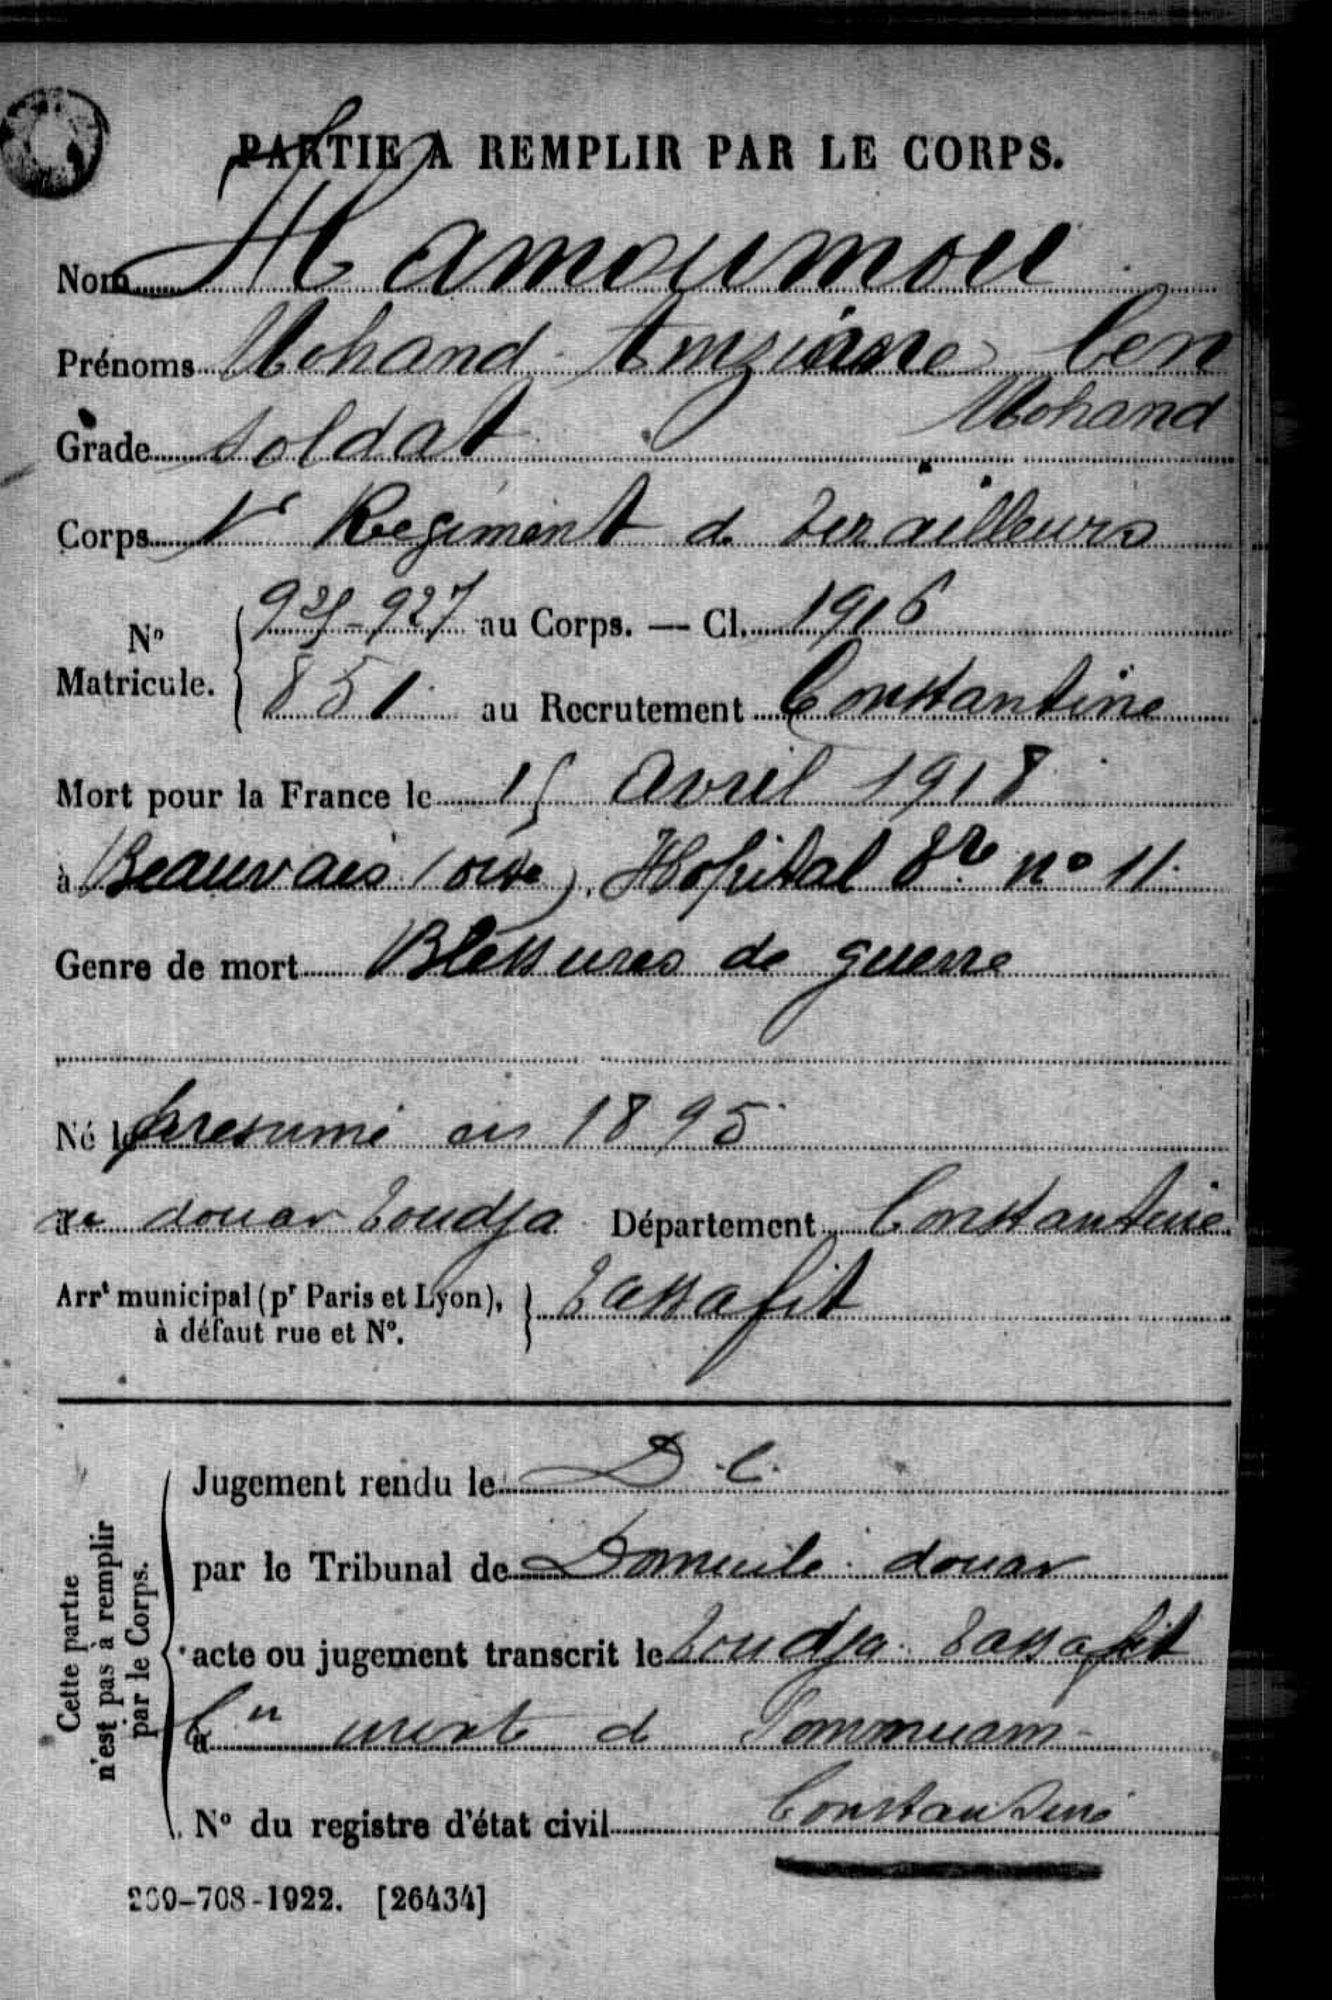 PARTIE A REMPLIR PAR LE CORPS.
Nom Hamoumou
Prénoms Mohand Amziane ben
Mohand
Grade Soldat
Corps 1er Régiment de Tirailleurs
No Matricule. 925-927 au Corps. — Cl. 1916
851 au Recrutement Constantine
Mort pour la France le 15 Avril 1918
à Beauvais (Oise). Hopital no 11
Genre de mort Blessures de guerre
Né le présumé en 1895
au douar Toudja Département Constantine
Arrt municipal (pr Paris et Lyon), à défaut rue et No. } Tassafit
Cette partie n'est pas à remplir par le Corps.
Jugement rendu le D.C.
par le Tribunal de Domicile douar
acte ou jugement transcrit le Toudja Tassafit
à Cne mixte de
No du registre d'état civil Constantine
269-708-1922. [26434]